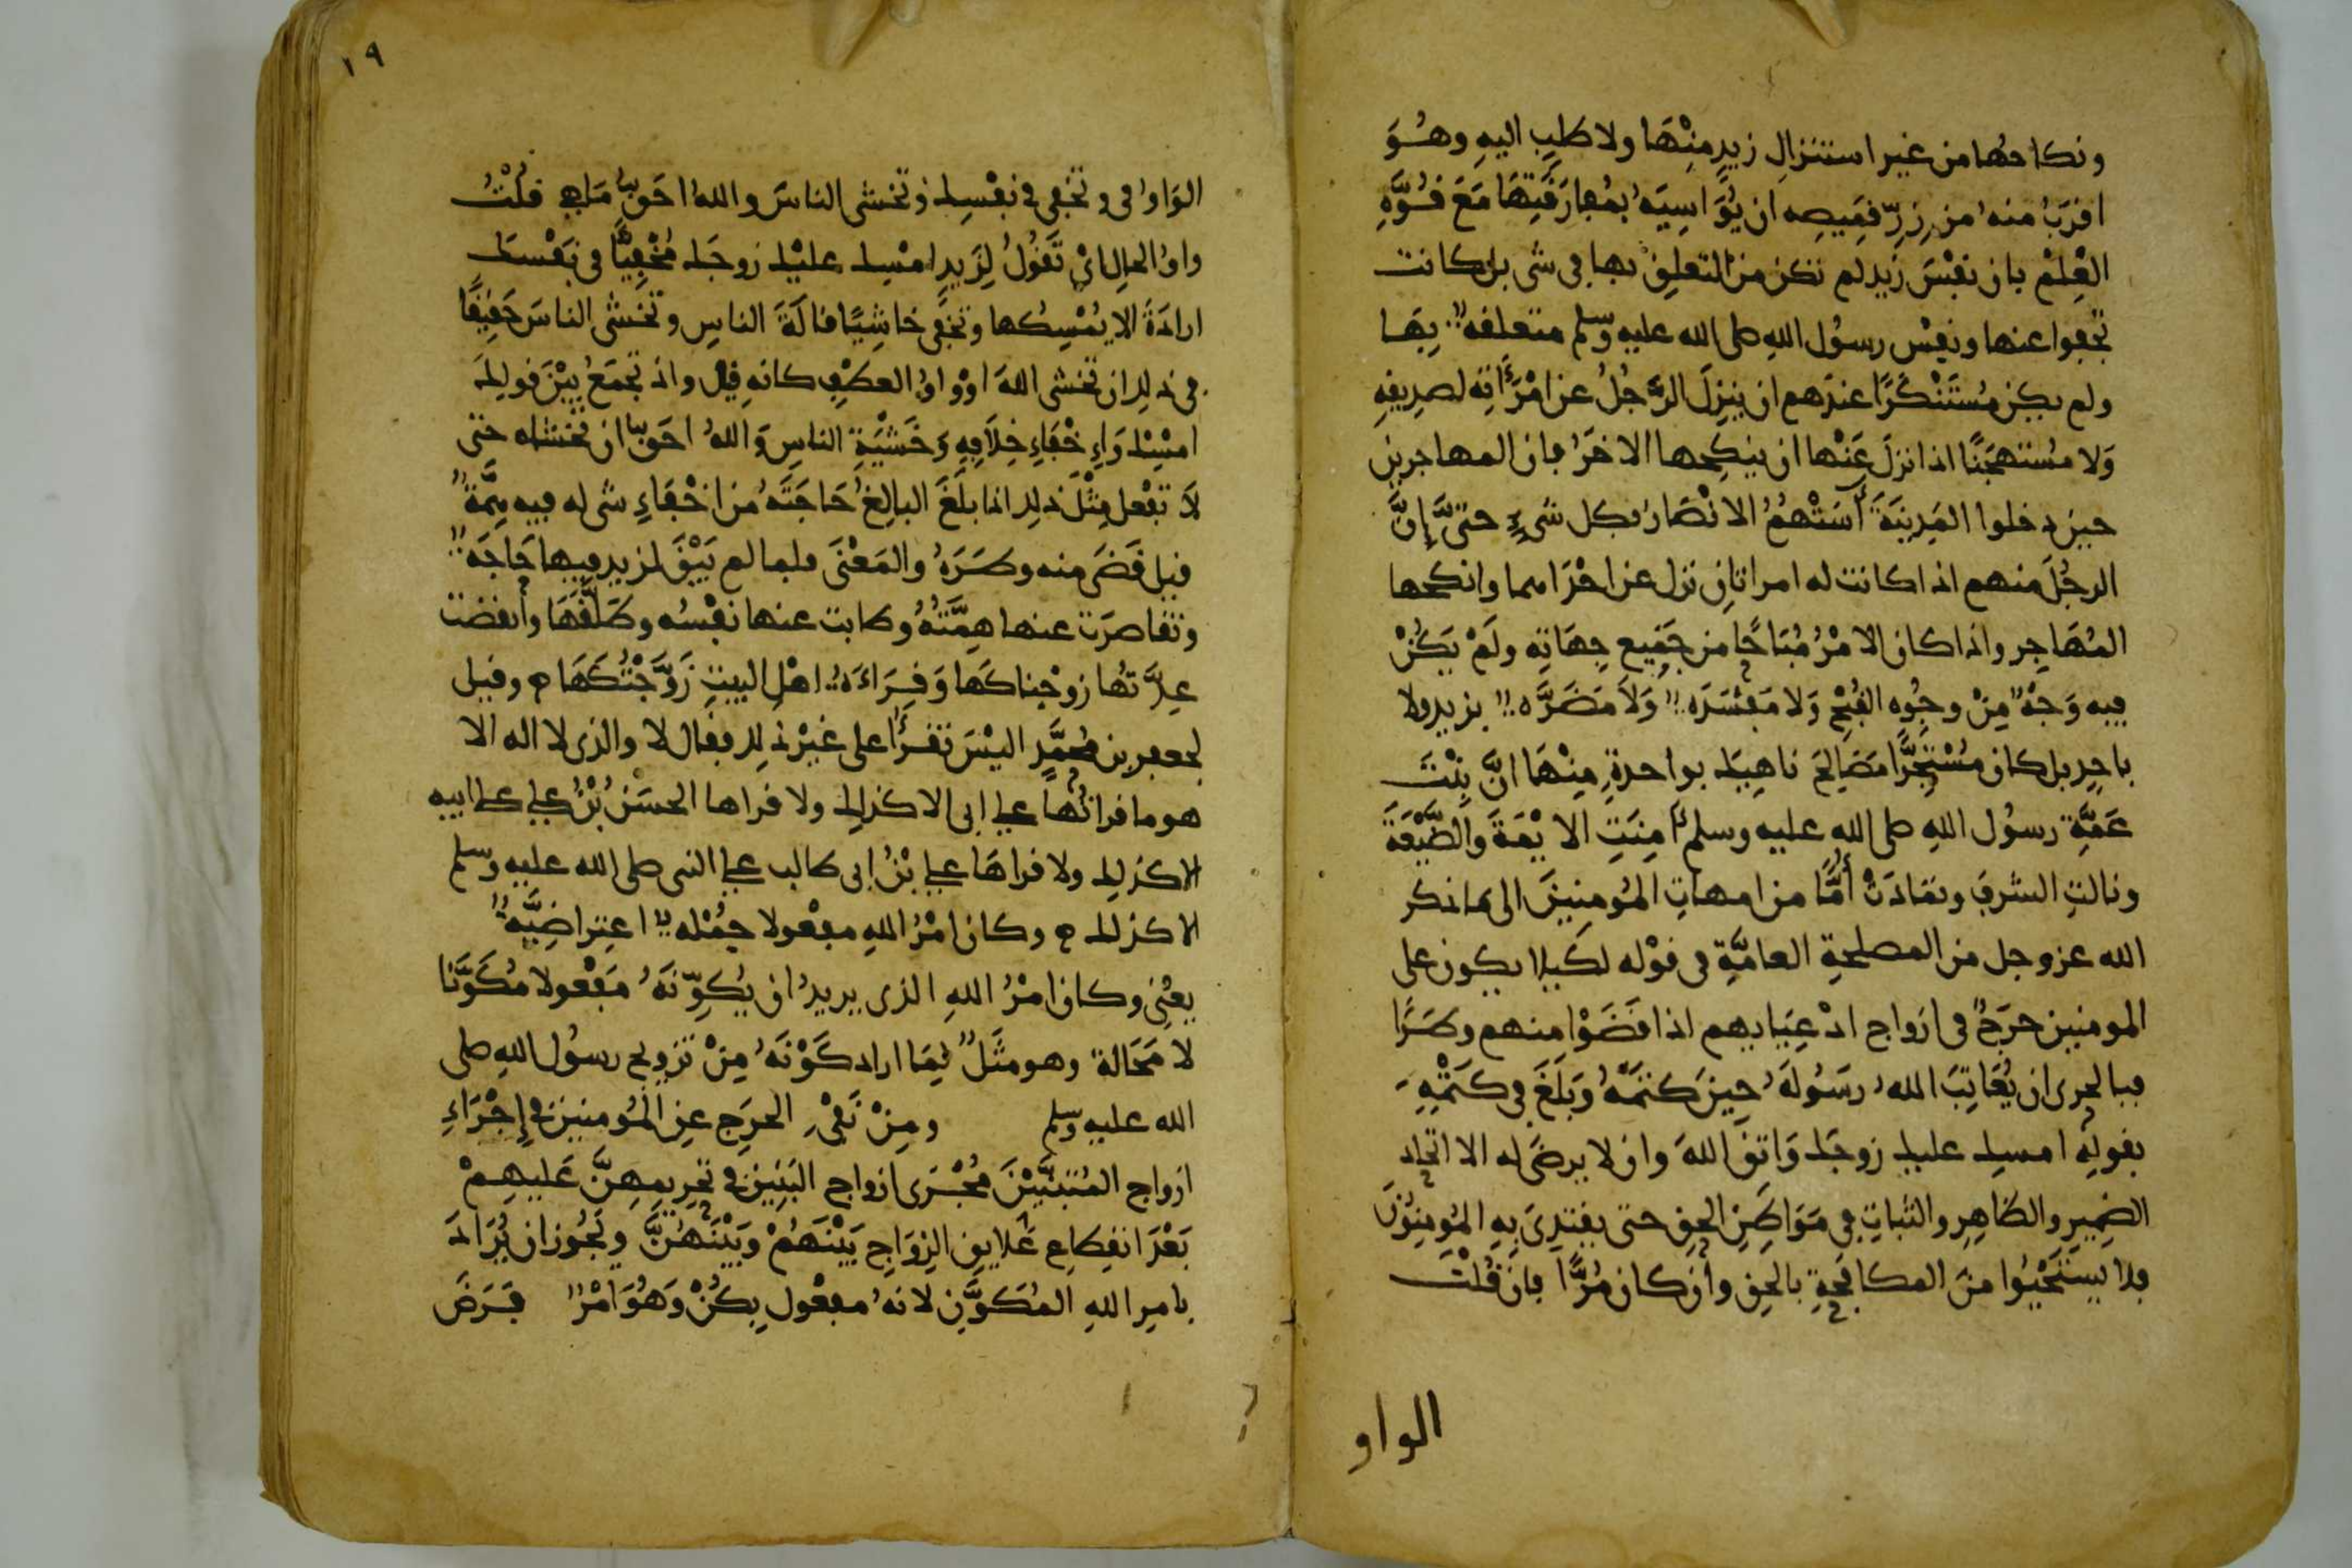 ونكاحها من غير استنزال زيد منها ولا طلب اليه وهو
اقرب منه من زر قميصه ان يواسيه بمفارقتها مع قوة
العلم بان نفس زيد لم تكن من التعلق بها في شى بل كانت
تجفوا عنها ونفس رسول الله صلى الله عليه وسلم متعلقة بها
ولم يكن مستنكرا عندهم ان ينزل الرجل عن امرأته لصديقه
ولا مستهجنا اذا نزل عنها ان ينكحها الاخر فان المهاجرين
حين دخلوا المدينة آستهم الانصار بكل شيء حتى إن
الرجل منهم اذا كانت له امراتان نزل عن احداهما وانكحها
المهاجر واذا كان الامر مباحا من جميع جهاته ولم يكن
فيه وجه من وجوه القبح ولا مفسدة ولا مضرة بزيد ولا
باحد بل كان مستجرا مصالح ناهيك بواحدة منها ان بنت
عمة رسول الله صلى الله عليه وسلم أمنت الايمة والضيعة
ونالت الشرف وعادت أما من امهات المومنين الى ما ذكر
الله عز وجل من المصلحة العامة في قوله لكيلا يكون على
المومنين حرج في ازواج ادعيايهم اذا قضوا منهن وطرا
فبالحرى ان يعاتب الله رسوله حين كتمه وبلغ في كتمه
بقوله امسك عليك زوجك واتق الله وان لا يرضى له الا اتحاد
الضمير والظاهر والثبات في مواطن الحق حتى يقتدى به المومنون
فلا يستحيوا من المكافحة بالحق وان كان مرا فان قلت
الواو
١٩
الواو في وتخفى في نفسك وتخشى الناس والله احق ماهى قلت
واو الحال اى تقول لزيد امسك عليك زوجك مخفيا في نفسك
ارادة الا يمسكها وتخفى خاشيا قالة الناس وتخشى الناس حقيقا
في ذلك ان تخشى الله او واو العطف كانه قيل واذ تجمع بين قولك
امسك واخفاء خلافه وخشية الناس والله احق ان تخشاه حتى
لا تفعل مثل ذلك اذا بلغ البالغ حاجته من شى له فيه همة
قيل قضى منه وطره والمعنى فلما لم يبق لزيد فيها حاجة
وتقاصرت عنها همته وطابت عنها نفسه وطلقها وانقضت
عدتها زوجناكها وقراءة اهل البيت زوجتكها وقيل
لجعفر بن محمد اليس تقرأ على غير ذلك فقال لا والذى لا اله الا
هو ما قراتها على ابى الا كذلك ولا قراها الحسن بن على على ابيه
الا كذلك ولا قراها على بن ابى طالب على النبى صلى الله عليه وسلم
الا كذلك وكان امر الله مفعولا جملة اعتراضية
يعنى وكان امر الله الذى يريد ان يكونه مفعولا مكونا
لا محالة وهو مثل لما اراد كونه من تزويج رسول الله صلى
الله عليه وسلم ومن نفى الحرج عن المومنين في إجراء
ازواج المتبنين مجرى ازواج البنين في تحريمهن عليهم
بعد انقطاع علايق الزواج بينهم وبينهن ويجوز ان يراد
بامر الله المكون لانه مفعول بكن وهو امر فرض